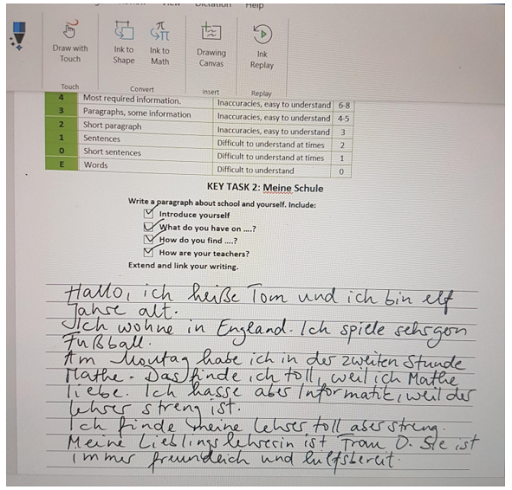 Dictation
Help
Draw with Touch
Ink to Shape
Ink to Math
Drawing Canvas
Ink Replay
Touch
Convert
Insert
Replay
4 Most required information. Inaccuracies, easy to understand 6-8
3 Paragraphs, some information Inaccuracies, easy to understand 4-5
2 Short paragraph Inaccuracies, easy to understand 3
1 Sentences Difficult to understand at times 2
0 Short sentences Difficult to understand at times 1
E Words Difficult to understand 0
KEY TASK 2: Meine Schule
Write a paragraph about school and yourself. Include:
Introduce yourself
What do you have on ....?
How do you find ....?
How are your teachers?
Extend and link your writing.
Hallo, ich heiße Tom und ich bin elf
Jahre alt.
Ich wohne in England. Ich spiele sehr gern
Fußball.
Am Montag habe ich in der zweiten Stunde
Mathe. Das finde ich toll, weil ich Mathe
liebe. Ich hasse aber Informatik, weil der
Lehrer streng ist.
Ich finde meine Lehrer toll aber streng.
Meine Lieblingslehrerin ist Frau D. Sie ist
immer freundlich und hilfsbereit.